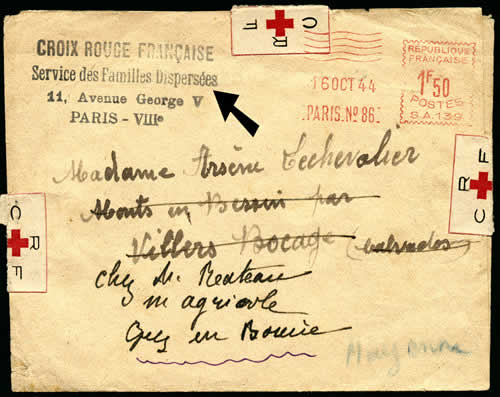 C R F
CROIX ROUGE FRANÇAISE
Service des Familles Dispersées
11, Avenue George V
PARIS - VIIIe
16 OCT 44
PARIS. No 86
RÉPUBLIQUE
FRANÇAISE
1F50
POSTES
S.A.139
Madame Arsène Lechevalier
Monts en Bessin par
Villers Bocage (Calvados)
chez M.
m agricole
en
Mayenne
C R F
C R F